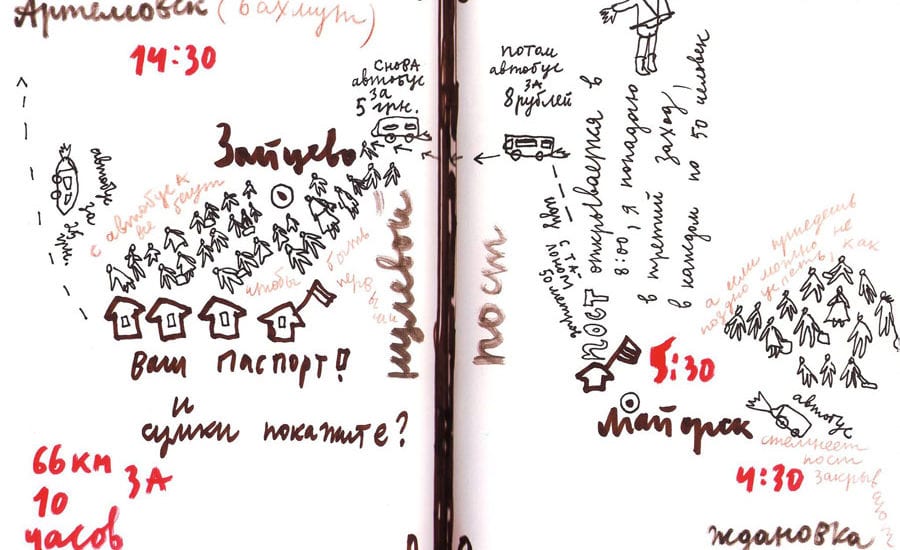 Артемовск (Бахмут)
14:30
снова
автобус
за
5 грн.
Зайцево
автобус за
с автобуса
все бегут
чтобы быть
первым
Ваш паспорт!
и
сумки покажите?
66 км
за
10
часов
нулевой
пост
потом
автобус
за
8 рублей
идти с та-
50 метров
пост открывается в
8:00, я попадаю
в третий заход,
в каждом по 50 человек
а если приедешь
поздно можно не
успеть, как
5:30
Майорск
автобус
стемнеет
пост
закрыв
4:30
Ждановка